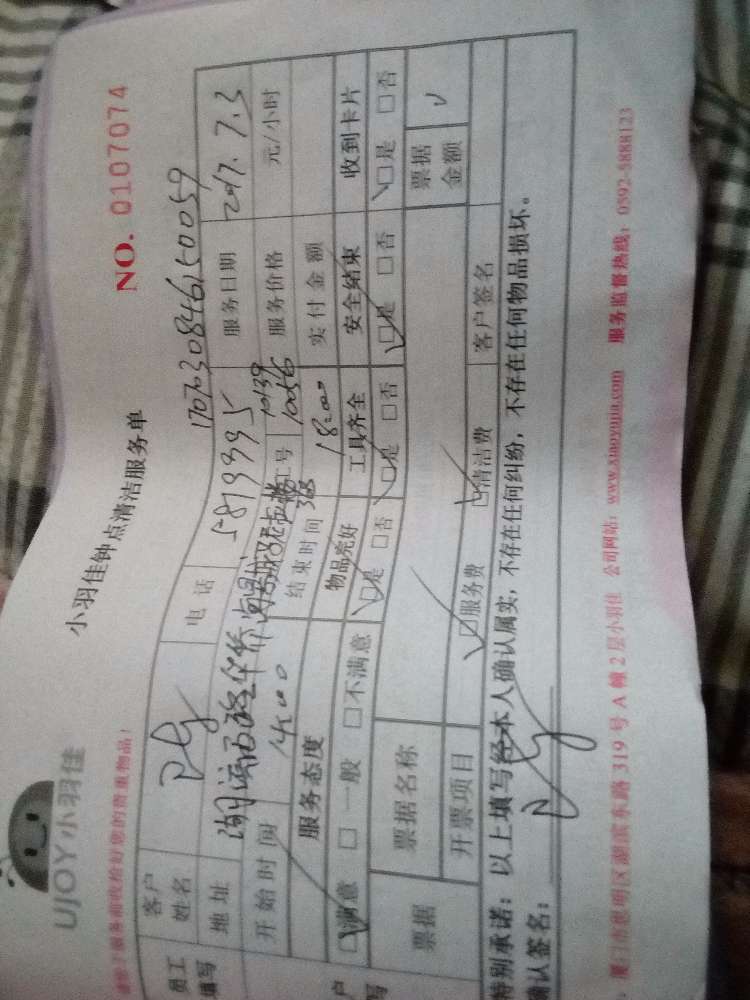 UJOY小羽佳
小羽佳钟点清洁服务单
NO. 0107074
1707030846150059
员工填写
客户姓名 电话 5819995 服务日期 2017.7.3
地址 湖滨西路华侨
工号 10139 10056 服务价格 元/小时
开始时间 14:00 结束时间 18:00 实付金额
服务态度 物品完好 工具齐全 安全结束 收到卡片
☑满意 □一般 □不满意 ☑是 □否 ☑是 □否 ☑是 □否 ☑是 □否
票据 票据名称 票据金额
开票项目 ☑服务费 ☑清洁费 客户签名
特别承诺：以上填写经本人确认属实，不存在任何纠纷，不存在任何物品损坏。
确认签名：
厦门市思明区湖滨东路319号A幢2层小羽佳 公司网站：www.xiaoyujia.com 服务监督热线：0592-5888123